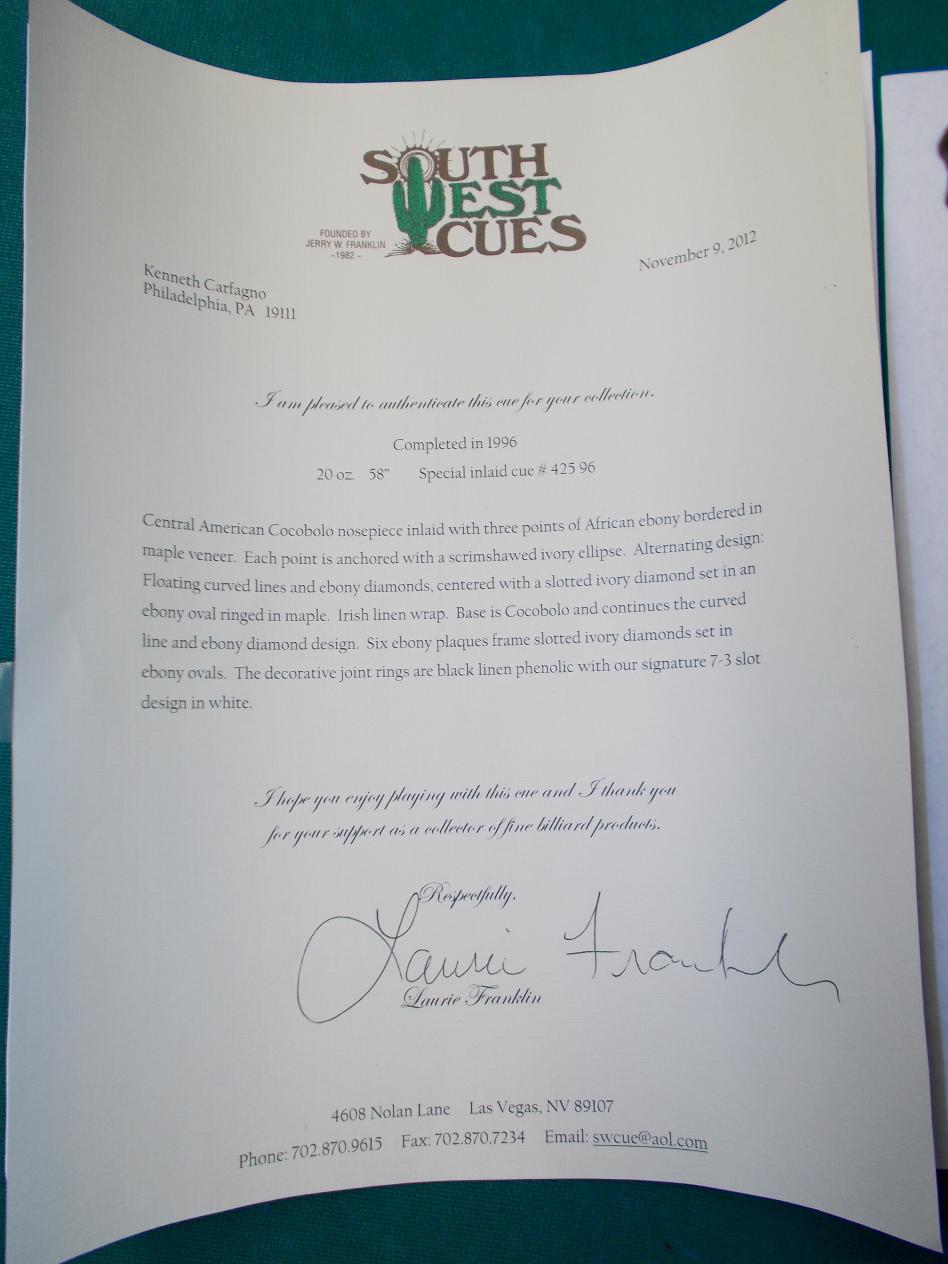 SOUTH
WEST
CUES
FOUNDED BY
JERRY W. FRANKLIN
~1982~
November 9, 2012
Kenneth Carfagno
Philadelphia, PA 19111
I am pleased to authenticate this cue for your collection.
Completed in 1996
20 oz. 58" Special inlaid cue # 425 96
Central American Cocobolo nosepiece inlaid with three points of African ebony bordered in
maple veneer. Each point is anchored with a scrimshawed ivory ellipse. Alternating design:
Floating curved lines and ebony diamonds, centered with a slotted ivory diamond set in an
ebony oval ringed in maple. Irish linen wrap. Base is Cocobolo and continues the curved
line and ebony diamond design. Six ebony plaques frame slotted ivory diamonds set in
ebony ovals. The decorative joint rings are black linen phenolic with our signature 7-3 slot
design in white.
I hope you enjoy playing with this cue and I thank you
for your support as a collector of fine billiard products.
Respectfully,
Laurie Franklin
Laurie Franklin
4608 Nolan Lane Las Vegas, NV 89107
Phone: 702.870.9615 Fax: 702.870.7234 Email: swcue@aol.com